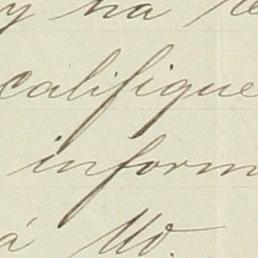 y ha
califique
inform
á Ud.